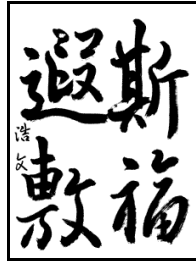 斯福
遐敷
浩文